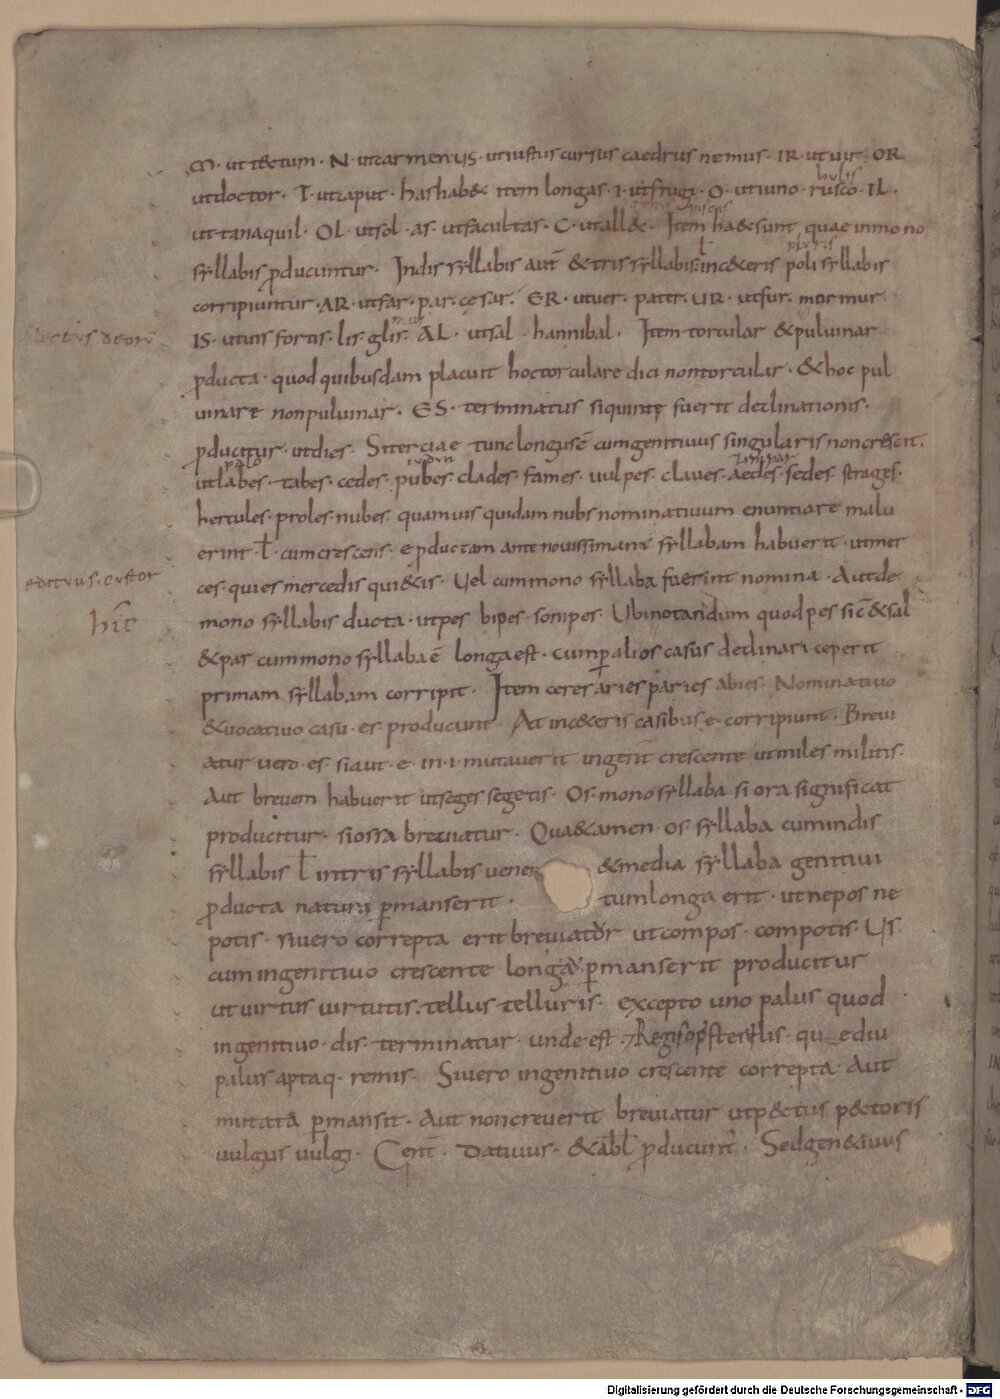 M· ut tectum· N· ut carmen· US· ut iustus cursus caedrus nemus· IR· ut uir· OR
hulis
ut doctor· T· ut caput· has habet item longas· I· ut frugi· O· ut iuno· rusco· IL·
ut tanaquil· OL· ut sol· as· ut facultas· C· ut allec· Item haec sunt quae in mono
pluris
syllabis ꝓducuntur· In dis syllabis aut̄ & tris syllabis· ł in c&eris poli syllabis
corripiuntur· AR· ut far· par· cesar· ER· ut uer· pater· UR· ut fur· murmur
lectus deoru
IS· ut uis fortis· lis· glis· AL· ut sal· hannibal· Item torcular & puluinar
ꝓducta· quod quibusdam placuit hoc torculare dici non torcular· & hoc pul
uinare non puluinar· ES· terminatus si quinte fuerit declinationis·
ꝓducitur· ut dies· Si terciae tunc longus ē cum genitiuus singularis non crescit·
ut labes· tabes· cedes· pubes· clades· fames· uulpes· claues· aedes· sedes· strages·
hercules· proles· nubes· quamuis quidam nubs nominatiuum enuntiare malu
erint· ł· cum crescens· e ꝓductam ante nouissimam syllabam habuerit· ut mer
edituus· custos
ces· quies mercedis qui&is· Uel cum mono syllaba fuerint nomina· Aut de
hic
mono syllabis ducta· ut pes bipes· sonipes· Ubi notandum quod pes sic & sal
& par cum mono syllaba ē longa est· cum ꝑ alios casus declinari ceperit
primam syllabam corripit· Item ceres aries paries abies· Nominatiuo
& uocatiuo casu· es· producunt· At in c&eris casibus e· corripiunt· Breui
atur uero· es· si aut· e· in· i· mutauerit in geniт̄ crescente ut miles militis·
Aut breuem habuerit ut seges segetis· Os· mono syllaba si ora significat
producitur· si ossa breuiatur· Qua& amen· os syllaba cum in dis
syllabis ł in tris syllabis uene & media syllaba genitiui
ꝓducta natura ꝑmanserit· tum longa erit· ut nepos ne
potis· si uero correpta erit breuiatur ut compos· compotis· US·
cum in genitiuo crescente longa ꝑmanserit producitus
ut uirtus uirtutis· tellus telluris· excepto uno palus quod
in genitiuo· dis· terminatur· unde est· Regis op̄ sterilis· qu e diu
palus aptaq· remis· Si uero in genitiuo crescente correpta· Aut
mutata ꝑmansit· Aut non creuerit breuiatur ut p&ctus p&ctoris
uulgus uulgi· Geniт̄· Datiuus· & abł ꝓducunt· Sed gen&iuus